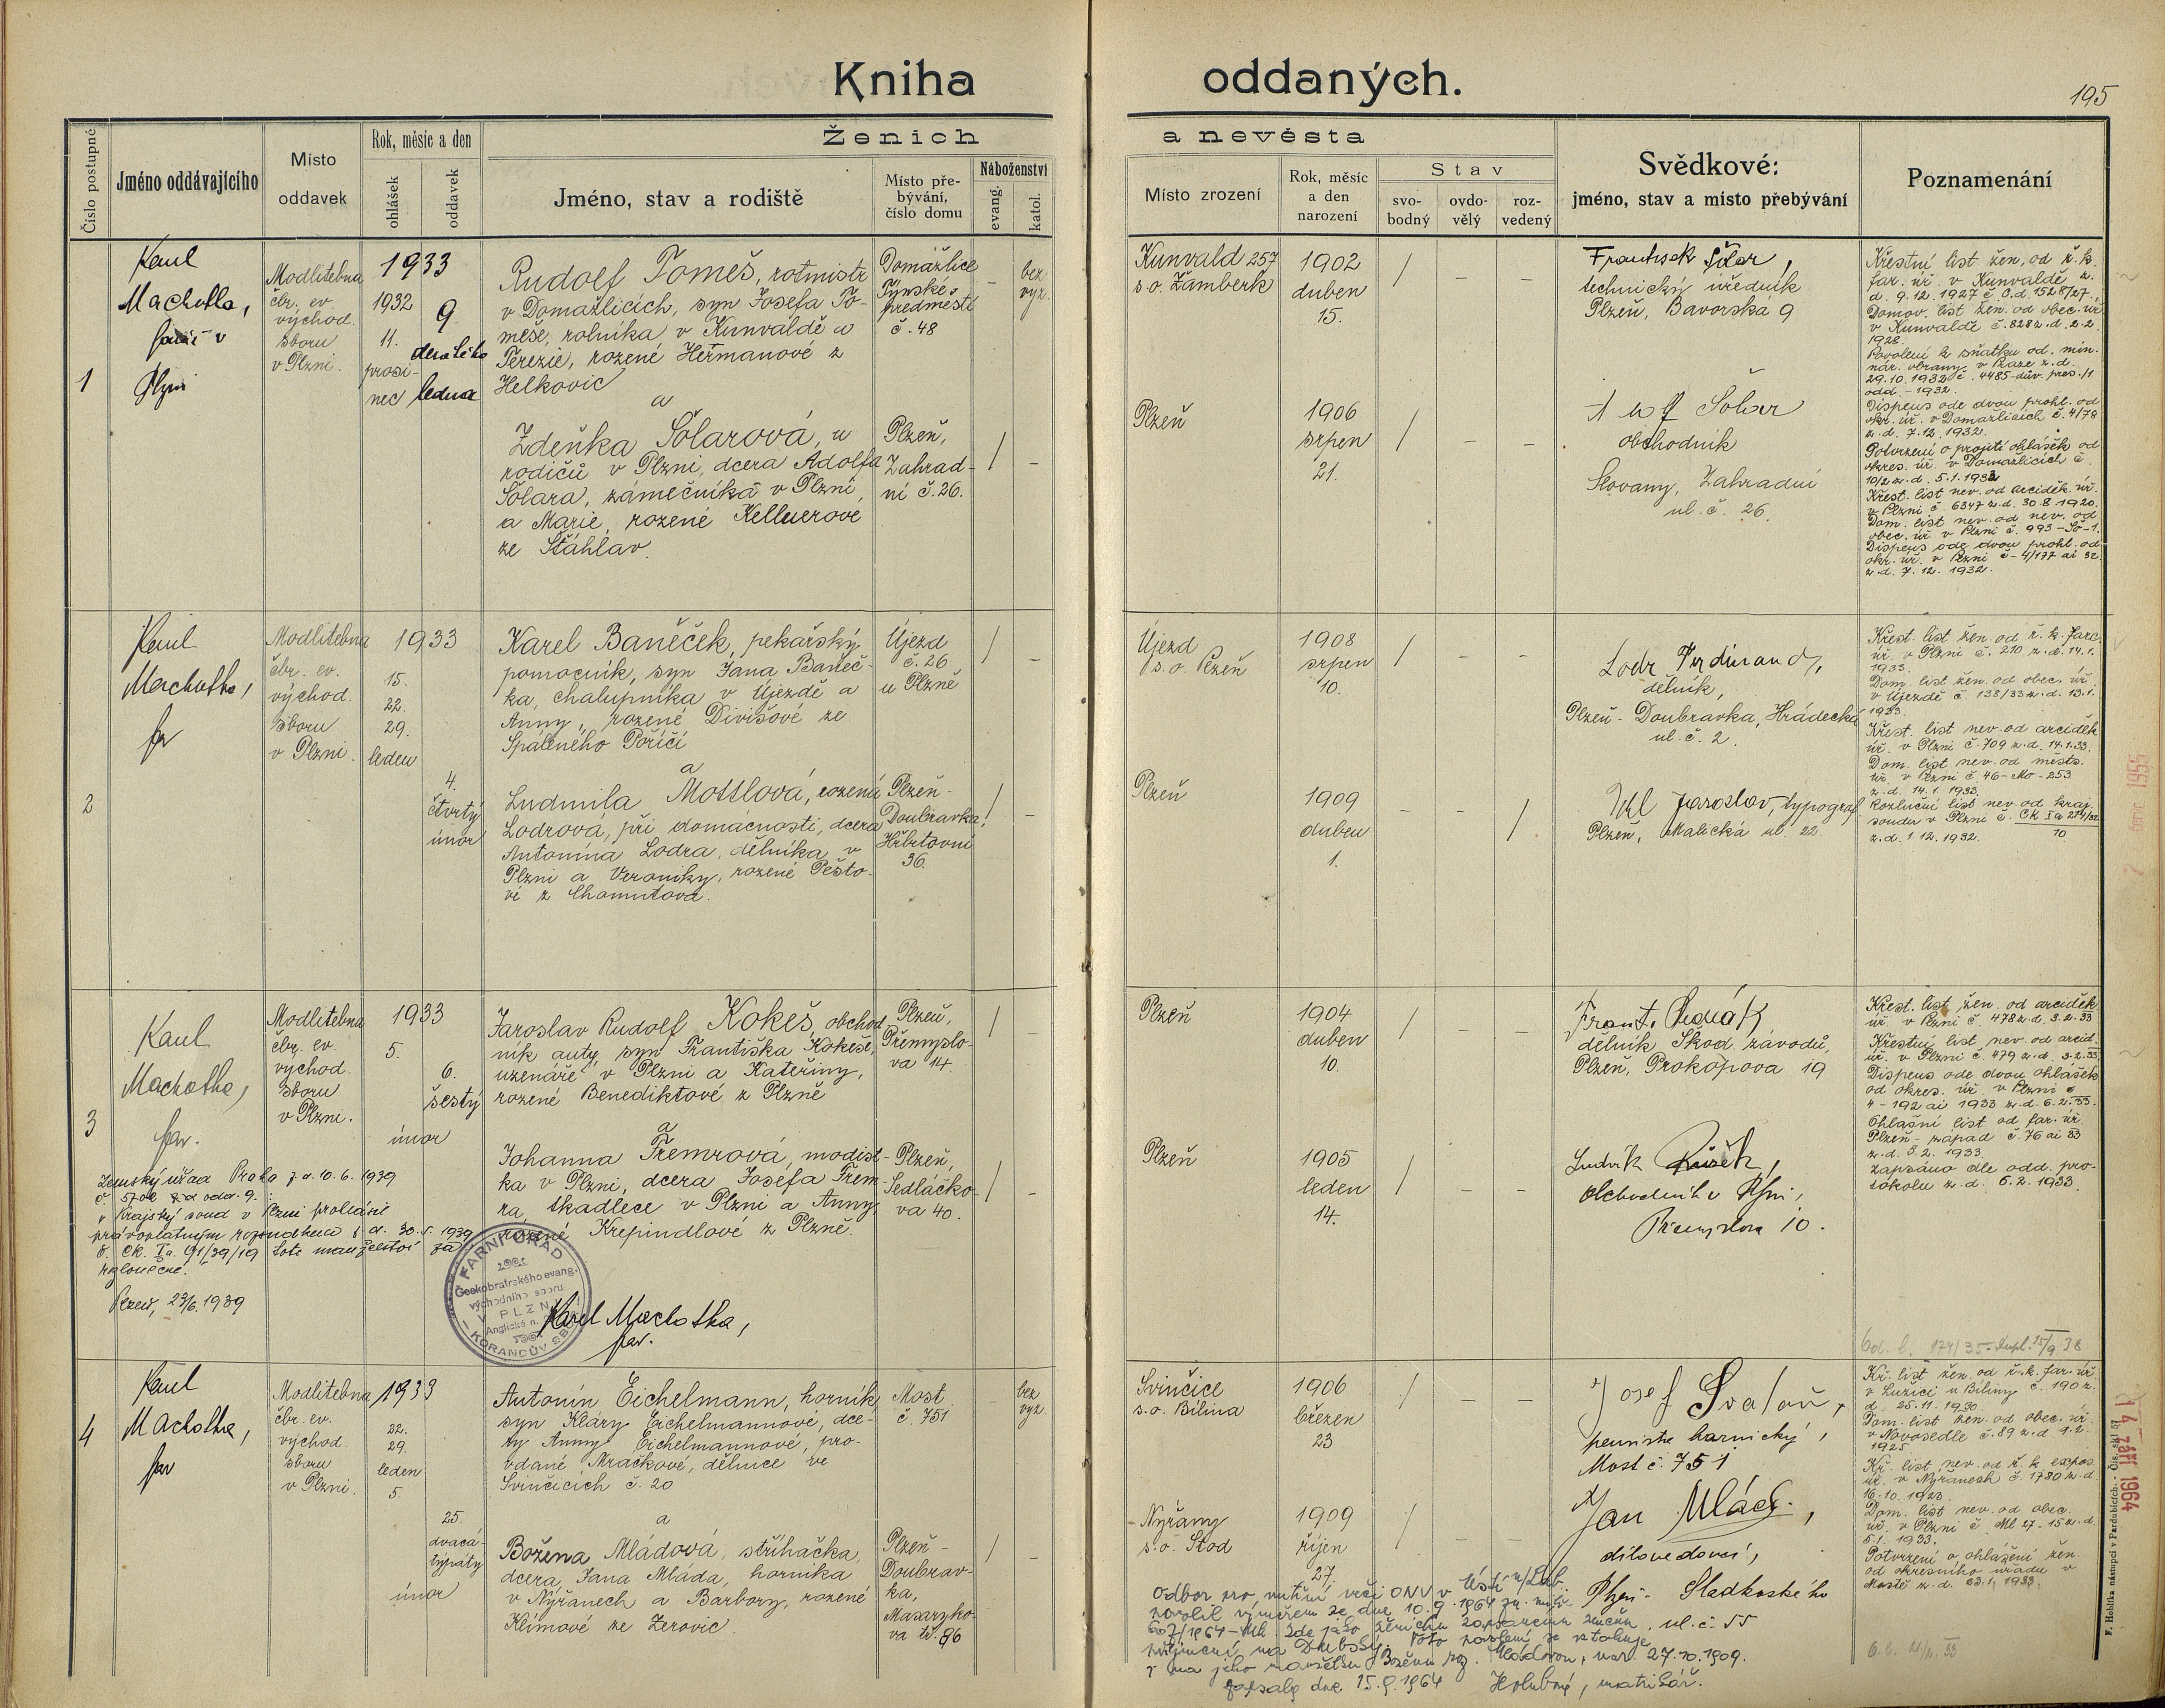 Kniha oddaných.
195
Číslo postupné
Jméno oddávajícího
Místo
oddavek
Rok, měsíc a den
ohlášek
oddavek
Ženich a nevěsta
Jméno, stav a rodiště
Místo pře-
bývání,
číslo domu
Náboženství
evang.
katol.
Místo zrození
Rok, měsíc
a den
narození
Stav
svo-
bodný
ovdo-
vělý
roz-
vedený
Svědkové:
jméno, stav a místo přebývání
Poznamenání
1
Karel
Machotka,
farář v
Plzni
Modlitebna
čbr. ev.
východ.
sboru
v Plzni.
1933
1932
11.
prosi-
nec
9.
devátého
ledna
Rudolf Tomeš, rotmistr
v Domažlicích, syn Josefa To-
meše, rolníka v Kunvaldě a
Terezie, rozené Heřmanové z
Helkovic
a
Zdeňka Šolarová, u
rodičů v Plzni, dcera Adolfa
Šolara, zámečníka v Plzni,
a Marie, rozené Kellnerové
ze Šťáhlav.
Domažlice
Týnské
předměstí
č. 48
Plzeň,
Zahrad-
ní č. 26.
–
bez
vyz.
/
–
Kunvald 257
s.o. Žamberk
Plzeň
1902
duben
15.
1906
srpen
21.
/ – –
/ – –
František Šolar,
technický úředník
Plzeň, Bavorská 9
Šolar
obchodník
Slovany, Zahradní
ul. č. 26.
Křestní list žen. od ř. k.
far. úř. v Kunvaldě z.
d. 9.12.1927 č. O.d. 1528/27.
Domov. list žen. od obec. úř.
v Kunvaldě č. 828 z. d. 2.2.
1928.
Povolení k sňatku od. min.
nár. obrany v Praze z. d.
29.10.1932 č. 4485-dův. pres./1
odd. - 1932.
Dispens ode dvou prohl. od
okr. úř. v Domažlicích č. 4/79
z. d. 7.12.1932.
Potvrzení o projití ohlášek od
okres. úř. v Domažlicích č.
10/2 z. d. 5.1.1933
Křest. list nev. od arciděk. úř.
v Plzni č. 6347 z. d. 30.8.1920.
Dom. list nev. od nev. od
obec. úř. v Plzni č. 993-Šo-1.
Dispens ode dvou prohl. od
okr. úř. v Plzni č - 4/177 ai 32
z. d. 7.12.1932.
2
Karel
Machotka,
far
Modlitebna
čbr. ev.
východ.
sboru
v Plzni.
1933
15.
22.
29.
leden
4.
čtvrtý
únor
Karel Baněček, pekařský
pomocník, syn Jana Baněč-
ka, chalupníka v Újezdě a
Anny, rozené Divišové ze
Spáleného Poříčí
a
Ludmila Mottlová, rozená
Lodrová, při domácnosti, dcera
Antonína Lodra, dělníka v
Plzni a Veroniky, rozené Pešto-
vé z Chomutova.
Újezd
č. 26
u Plzně
Plzeň-
Doubravka,
Hřbitovní
36.
/ –
/ –
Újezd
s.o. Plzeň
Plzeň
1908
srpen
10.
1909
duben
1.
/ – –
– – /
Lodr Ferdinand,
dělník,
Plzeň - Doubravka, Hrádecká
ul. č. 2.
Jaroslav, typograf
Plzeň, Malická ul. 22.
Křest. list žen. od ř. k. farc.
úř. v Plzni č. 210 z. d. 14.1.
1933.
Dom. list žen. od obec. úř.
v Újezdě č. 138/33 z. d. 13.1.
1933.
Křest. list nev. od arciděk.
úř. v Plzni č. 709 z. d. 14.1.33.
Dom. list nev. od měšts.
úř. v Plzni č. 46-Mo-253
z. d. 14.1.1933.
Rozlučný list nev. od kraj.
soudu v Plzni č. Ck Ia 274/32
10
z. d. 1.12.1932.
1955
3
Karel
Machotka,
far.
Modlitebna
čbr. ev.
východ.
sboru
v Plzni.
1933
5.
6.
šestý
únor
Jaroslav Rudolf Kokeš, obchod-
ník auty, syn Františka Kokeše,
uzenáře v Plzni a Kateřiny,
rozené Benediktové z Plzně
a
Johanna Tremrová, modist-
ka v Plzni, dcera Josefa Trem-
ra, tkadlece v Plzni a Anny,
rozené Krepindlové z Plzně.
Plzeň,
Přemyslo-
va 14.
Plzeň,
Sedláčko-
va 40.
/ –
/ –
Plzeň
Plzeň
1904
duben
10.
1905
leden
14.
/ – –
/ – –
Frant.
dělník Škod. závodů,
Plzeň, Prokopova 19
Ludvík
obchodník v Plzni,
Přemyslova 10.
Křest. list žen. od arciděk.
úř. v Plzni č. 478 z. d. 3.2.33
Křestní list nev. od arcid.
úř. v Plzni č. 479 z. d. 3.2.33
Dispens ode dvou ohlášek
od okres. úř. v Plzni č
4 - 192 ai 1933 z. d. 6.2.33.
Ohlašní list od far. úř.
Plzeň - západ č. 76 ai 33
z. d. 5.2.1933.
Zapsáno dle odd. pro-
tokolu z. d. 6.2.1933.
Zemský úřad Praha z d. 10.6.1939
odd. 9.:
Krajský soud v Plzni prohlásil
pravoplatným rozsudkem z d. 30.5.1939
č. Ck. Ia. 91/39/19 toto manželství za
rozloučené.
Plzeň, 23/6.1939
FARNÍ ÚŘAD
Českobratrského evang.
východního sboru
V PLZNI
Anglické n.
KORANDŮV SBOR
Karel Machotka,
far.
4
Karel
Machotka,
far
Modlitebna
čbr. ev.
východ.
sboru
v Plzni.
1933
22.
29.
leden
5.
25.
dvacá-
týpátý
únor
Antonín Eichelmann, horník,
syn Kláry Eichelmannové, dce-
ry Anny Eichelmannové, pro-
vdané Mračkové, dělnice ve
Svinčicích č. 20
a
Božena Mládová, stříhačka,
dcera Jana Mláda, horníka
v Nýřanech a Barbory, rozené
Klímové ze Žerovic.
Most
č. 751
Plzeň -
Doubrav-
ka,
Masaryko-
va tř. 86
–
bez
vyz.
/ –
Svinčice
s.o. Bílina
Nýřany
s.o. Stod
1906
březen
23
1909
říjen
27.
/ – –
/ – –
Josef
pensista hornický,
Most č. 751
Jan Mlád.,
dílovedoucí,
Plzeň - Sladkovského
ul. č. 55
Kř. list žen. od ř. k. far. úř.
v Lužici u Bíliny č. 190 z.
d. 25.11.1930.
Dom. list žen. od obec. úř.
v Novosedle č. 89 z. d. 9.2.
1925.
Kř. list nev. od ř. k. expos.
úř. v Nýřanech č. 1780 z. d.
16.10.1923.
Dom. list nev. od obec.
úř. v Plzni č. Ml 27-15 z. d.
5.1.1933.
Potvrzení o ohlášení žen.
od okresního úřadu v
Mostě z. d. 23.1.1933.
Odbor pro vnitřní věci ONV v Ústí n/Lab.
povolil výměrem ze dne 10.9.1964 zn. matr.
607/1964 - zde jako ženichu zapsanému změnu
příjmení na Dubský. Toto povolení se vztahuje
i na jeho manželku Boženu roz. Mládovou, nar. 27.10.1909.
Zapsala dne 15.9.1964 Holubová, matrikář.
14. září 1964
F. Hoblíka nástupci v Pardubicích. - Čís. skl. 57